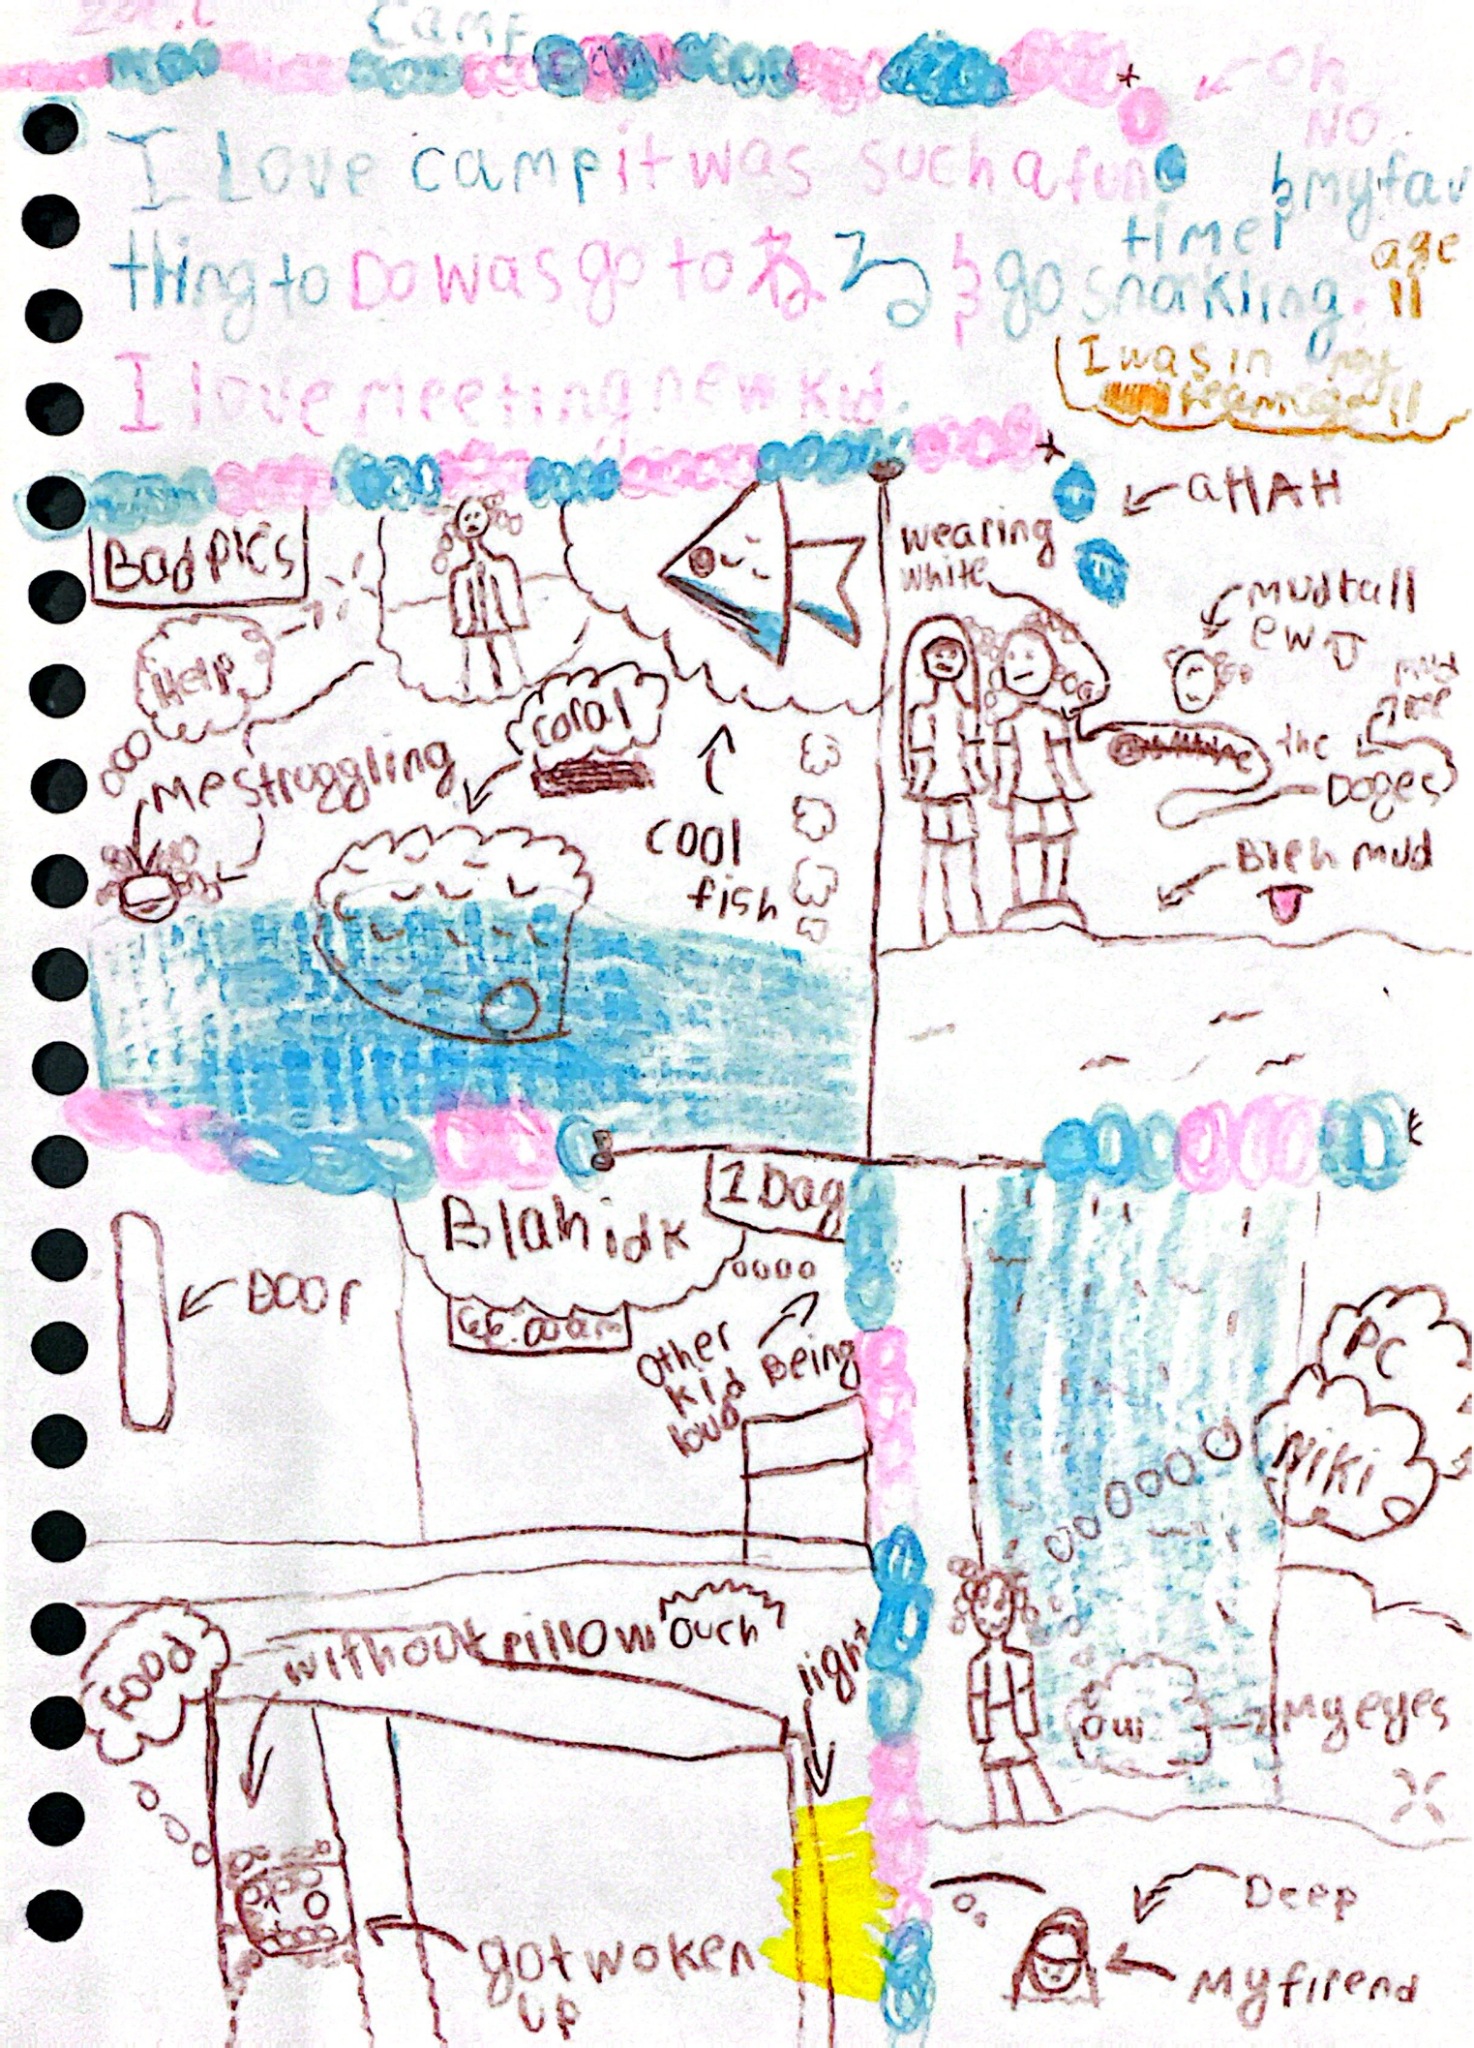 Camp
oh
NO
I Love camp it was such a fun time & my fav
thing to Do was go to & go snorkling.
age
11
I love meeting new kid
I was in my
Bad pics
aHAH
wearing
white
Mudball
ew
Help
coral
me struggling
mud
the
Doges
cool
fish
Bleh mud
Blah idk
1 Day
Door
66:00am
Other
kid Being
loud
PC
Niki
Food
without pillow
ouch
light
ow
My eyes
got woken
up
Deep
My firend